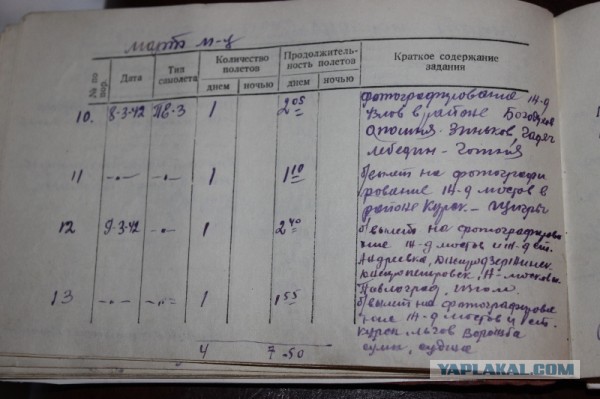 март м-ц
№ по пор. Дата Тип самолета Количество полетов Продолжительность полетов Краткое содержание задания
днем ночью днем ночью
10. 8-3-42 ПЕ-3 1 2 05 фотографирование ж-д
узлов в районе Богодухов
Опошня - Зиньков, Гадяч
Лебедин - Готня
11 -"- -"- 1 1 10 б/вылет на фотографи
рование ж-д мостов в
районе Курск - Щигры
12 9-3-42 -"- 1 2 40 б/вылет на фотографирова
ние ж-д мостов и ж-д ст.
Андреевка, Днепродзержинск
Днепропетровск, Н-московск
Павлоград, Изюм.
13 -"- -"- 1 1 55 б/вылет на фотографирова
ние ж-д мостов и ст.
Курск Льгов Ворожба
Сумы, Суджа
4 7-50
YAPLAKAL.COM